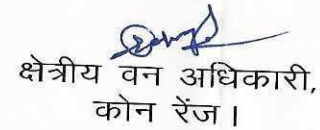 क्षेत्रीय वन अधिकारी,
कोन रेंज।